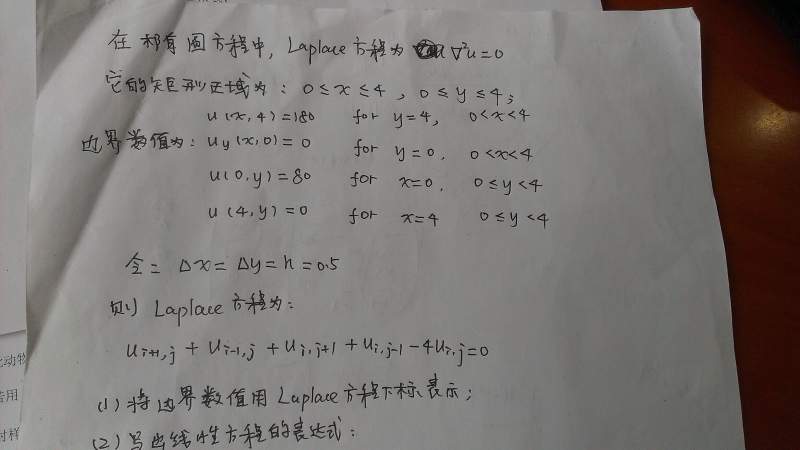 在 稀有 图方程中, Laplace 方程为 ∇²u=0
它的矩形区域为: 0≤x≤4, 0≤y≤4;
u(x,4)=180 for y=4, 0<x<4
边界数值为: uy(x,0)=0 for y=0, 0<x<4
u(0,y)=80 for x=0, 0≤y<4
u(4,y)=0 for x=4 0≤y<4
令= Δx=Δy=h=0.5
则 Laplace 方程为:
ui+1,j + ui-1,j + ui,j+1 + ui,j-1 -4ui,j=0
(1) 将边界数值用 Laplace 方程下标表示;
(2) 写出线性方程的表达式:
动物
告用
对样